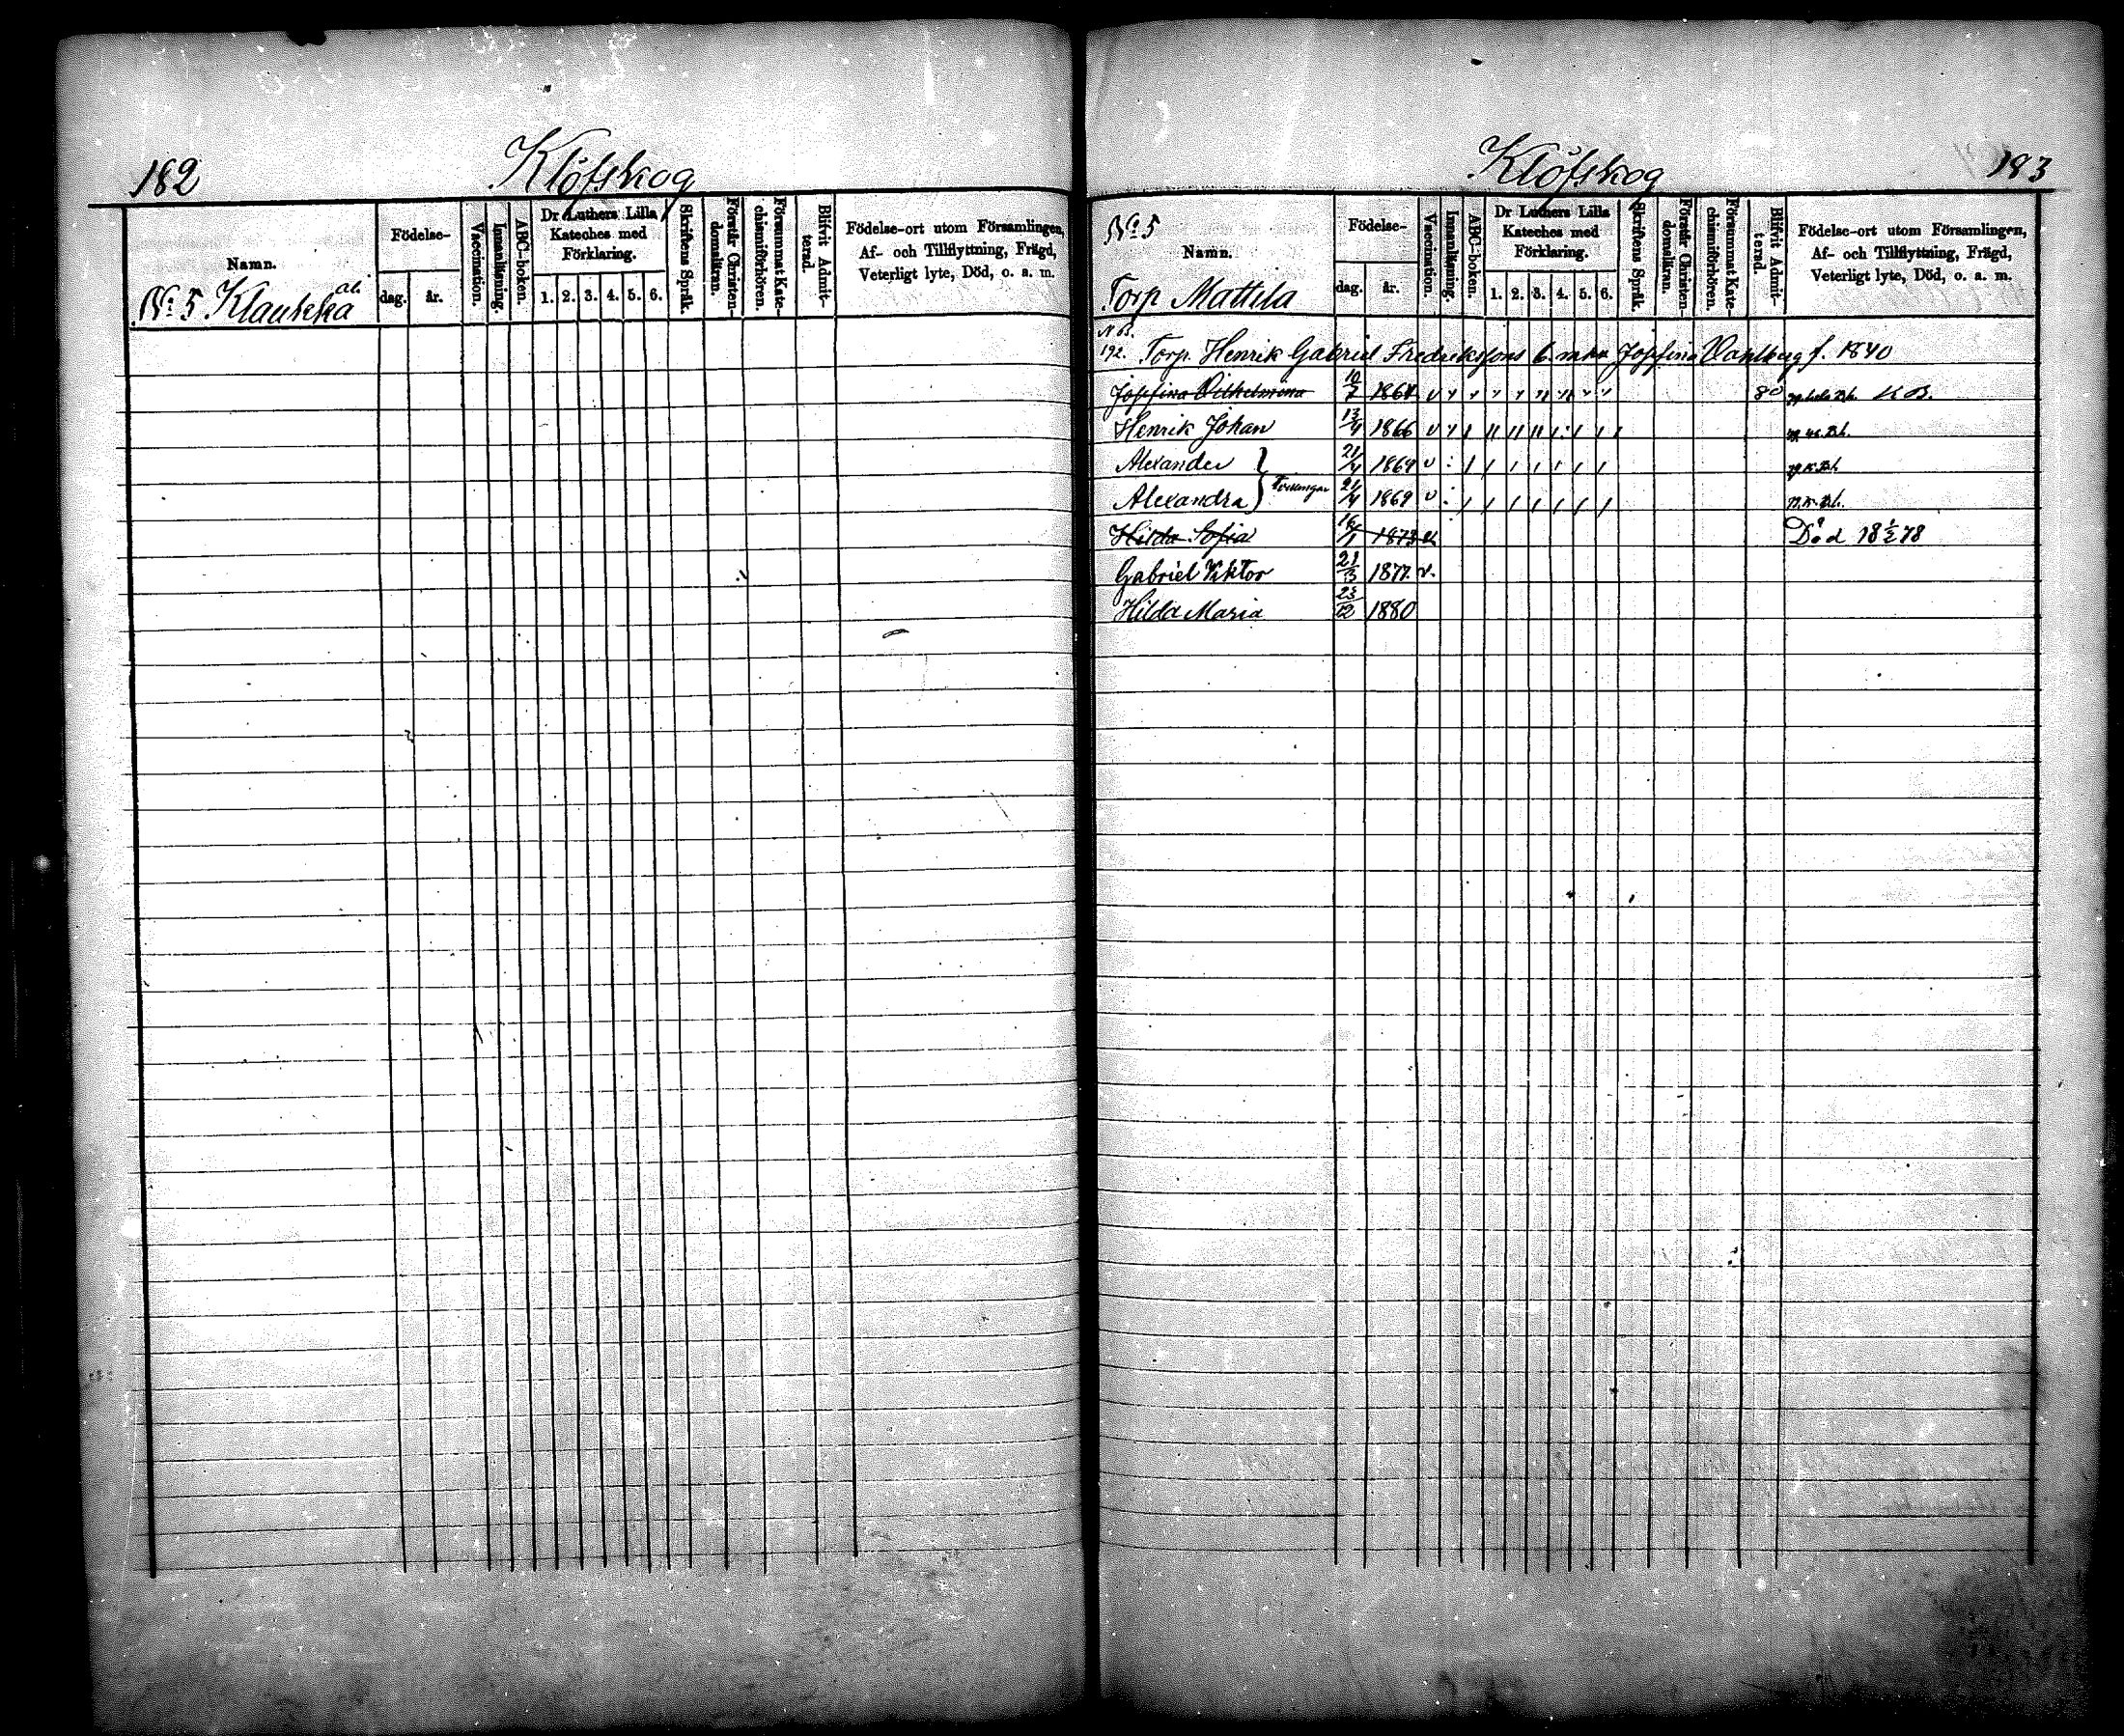 182
Klöfskog
Namn.
Födelse-
dag.
år.
Vaccination.
Innanläsning.
ABC-boken.
Dr Luthers Lilla
Kateches med
Förklaring.
1. 2. 3. 4. 5. 6.
Skriftens Språk.
Förstår Christen-
domsläran.
Försummat Kate-
chismiförhören.
Blifvit Admit-
terad.
Födelse-ort utom Församlingen,
Af- och Tillflyttning, Frägd,
Veterligt lyte, Död, o. a. m.
No 5 Klaukka
Klöfskog
183
No 5
Namn.
Torp Mattila
Födelse-
dag.
år.
Vaccination.
Innanläsning.
ABC-boken.
Dr Luthers Lilla
Kateches med
Förklaring.
1. 2. 3. 4. 5. 6.
Skriftens Språk.
Förstår Christen-
domsläran.
Försummat Kate-
chismiförhören.
Blifvit Admit-
terad.
Födelse-ort utom Församlingen,
Af- och Tillflyttning, Frägd,
Veterligt lyte, Död, o. a. m.
192. Torp. Henrik Gabriel Fredriksfons Josefina f. 1840
Josefina Vilhelmina 10/7 1864 80
Henrik Johan 13/4 1866
Alexander 21/4 1869
Alexandra 21/4 1869
Hilda Sofia 16/1 1873 Död 18 1/2 78
Gabriel Viktor 21/3 1877
Hilda Maria 23/12 1880